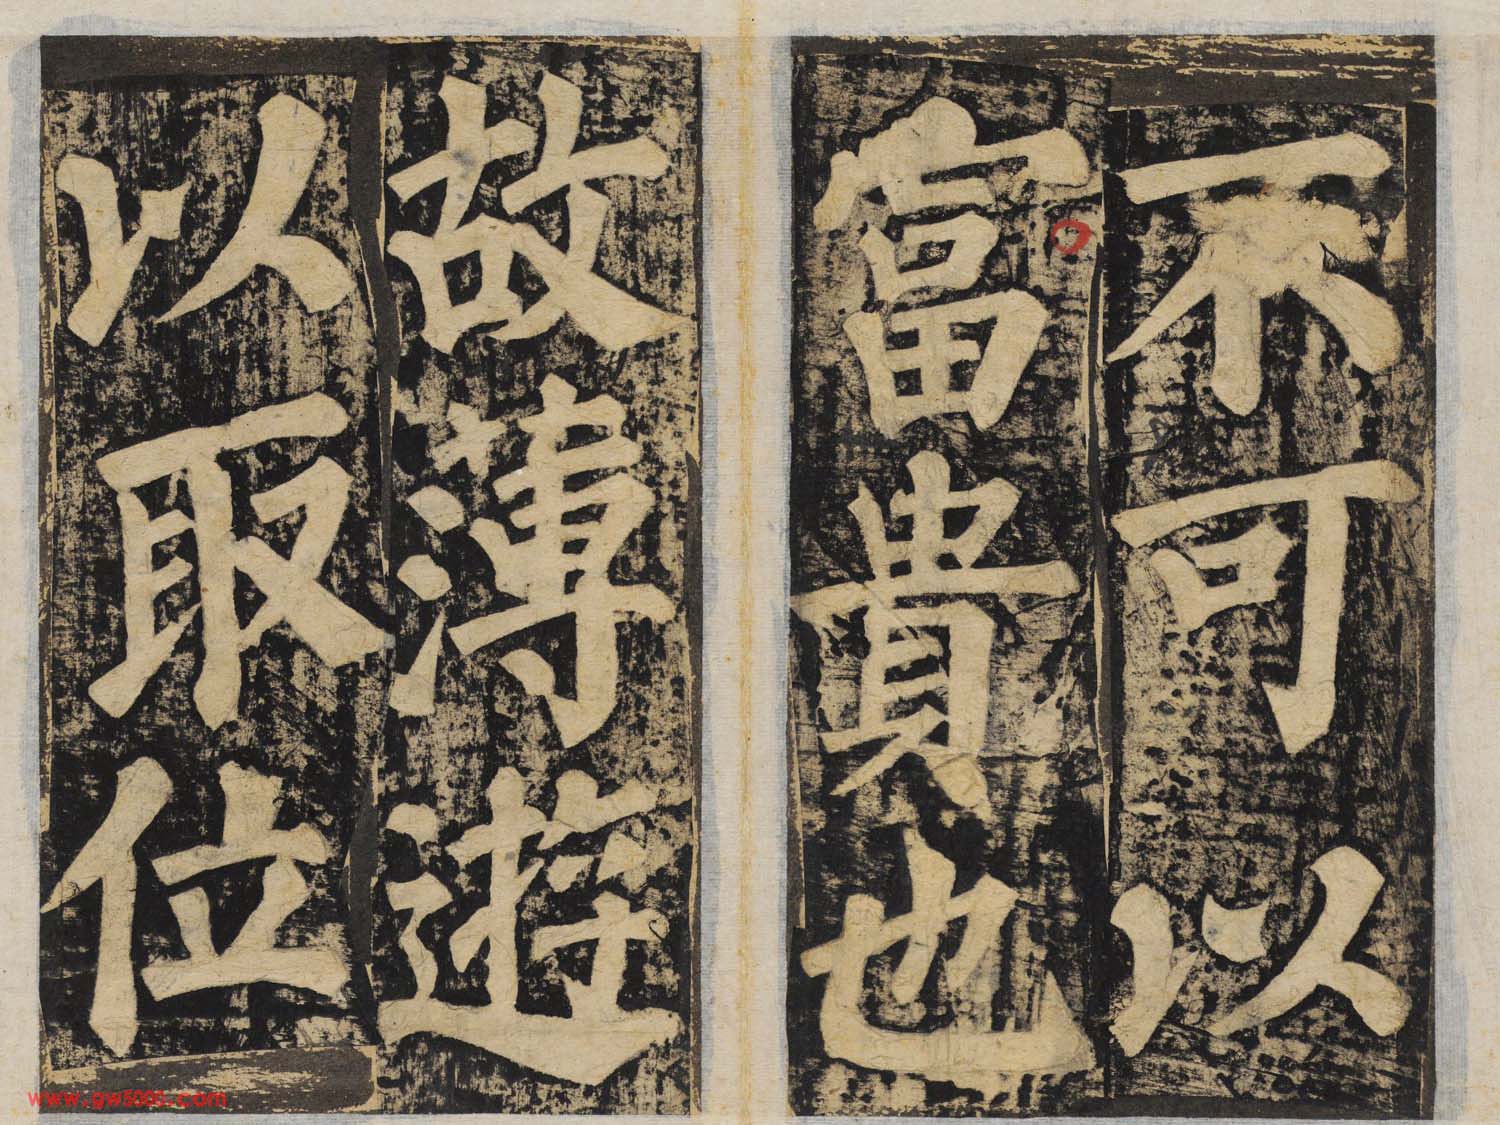 不可以
富貴也
故薄遊
以取位
www.gw5000.com